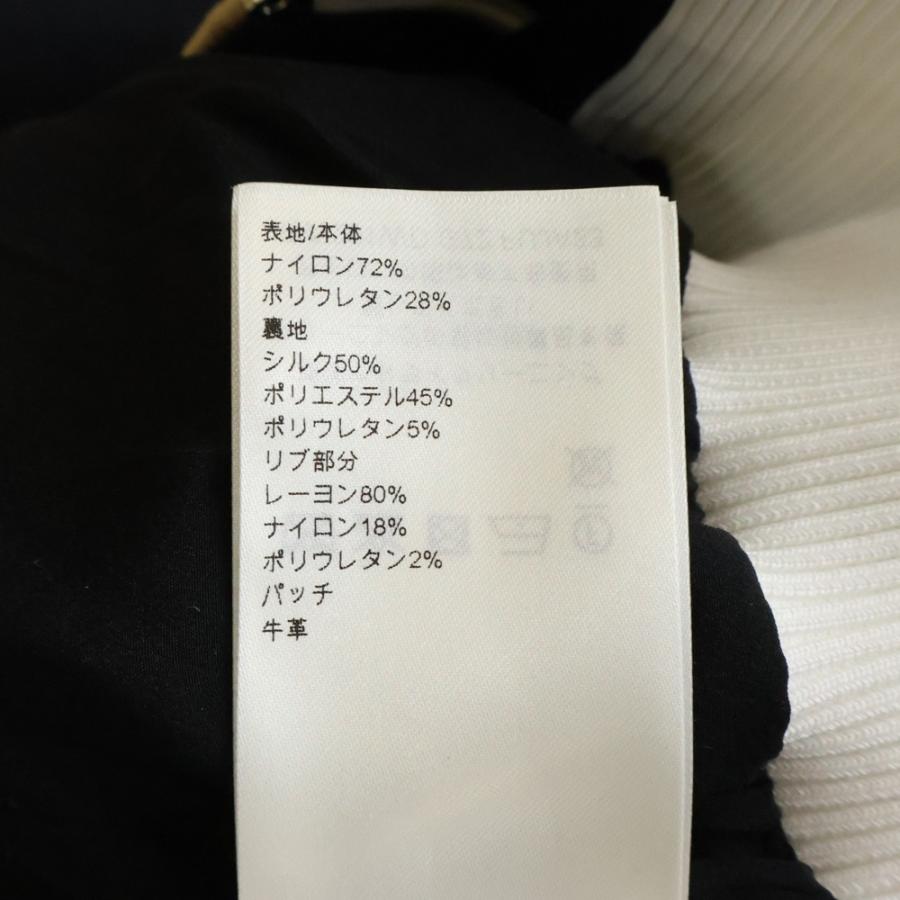 表地/本体
ナイロン72%
ポリウレタン28%
裏地
シルク50%
ポリエステル45%
ポリウレタン5%
リブ部分
レーヨン80%
ナイロン18%
ポリウレタン2%
パッチ
牛革